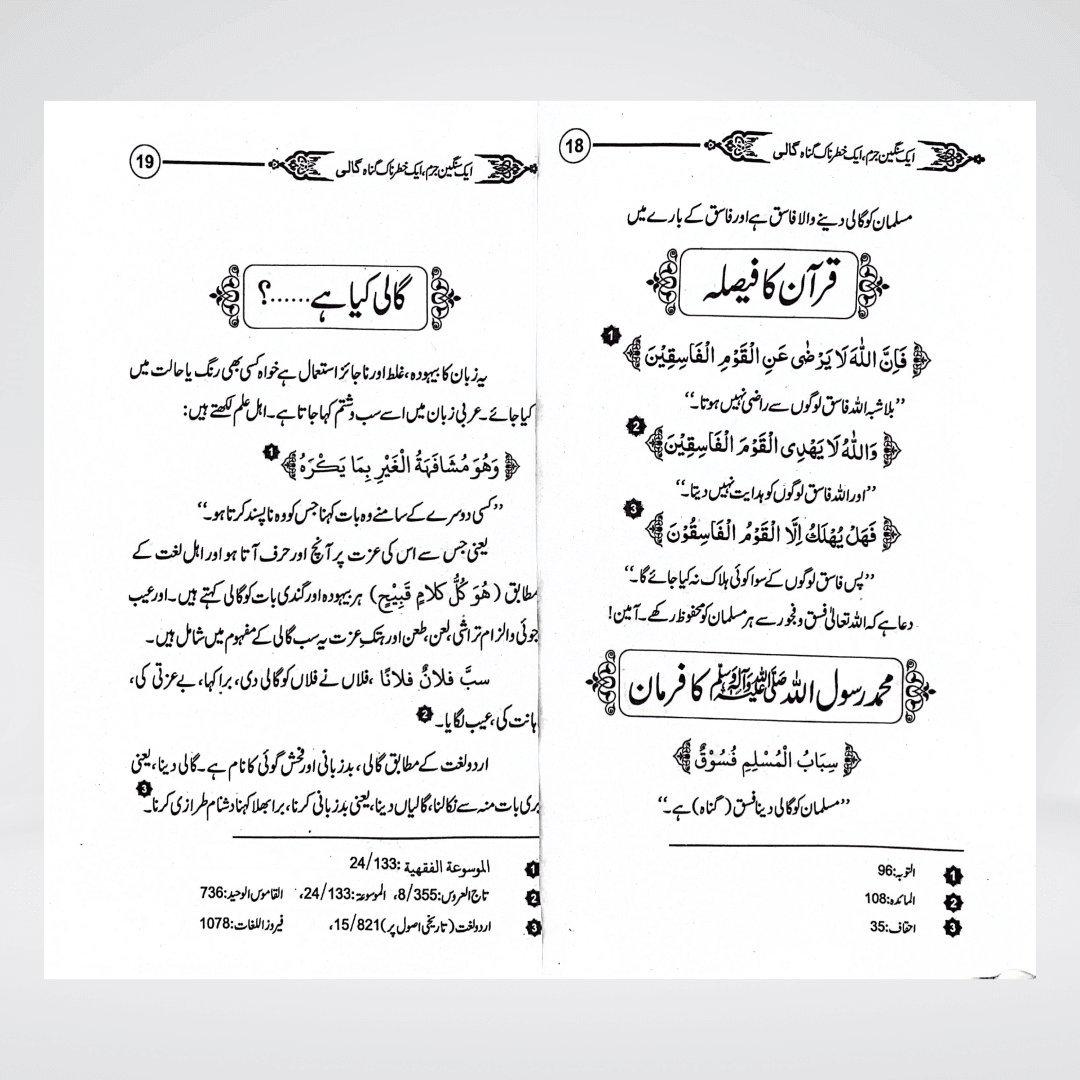 ایک سنگین جرم، ایک خطرناک گناہ گالی
18
مسلمان کو گالی دینے والا فاسق ہے اور فاسق کے بارے میں
قرآن کا فیصلہ
﴿فَاِنَّ اللّٰهَ لَا يَرْضٰى عَنِ الْقَوْمِ الْفَاسِقِيْنَ﴾ 1
’’بلاشبہ اللہ فاسق لوگوں سے راضی نہیں ہوتا۔‘‘
﴿وَاللّٰهُ لَا يَهْدِى الْقَوْمَ الْفَاسِقِيْنَ﴾ 2
’’اور اللہ فاسق لوگوں کو ہدایت نہیں دیتا۔‘‘
﴿فَهَلْ يُهْلَكُ اِلَّا الْقَوْمُ الْفَاسِقُوْنَ﴾ 3
’’پس فاسق لوگوں کے سوا کوئی ہلاک نہ کیا جائے گا۔‘‘
دعا ہے کہ اللہ تعالیٰ فسق و فجور سے ہر مسلمان کو محفوظ رکھے۔ آمین!
محمد رسول اللہ صَلَّى اللّٰهُ عَلَيْهِ وَآلِهِ وَسَلَّمَ کا فرمان
﴿سِبَابُ الْمُسْلِمِ فُسُوْقٌ﴾
’’مسلمان کو گالی دینا فسق (گناہ) ہے۔‘‘
1 التوبہ:96
2 المائدہ:108
3 احقاف:35
ایک سنگین جرم، ایک خطرناک گناہ گالی
19
گالی کیا ہے......؟
یہ زبان کا بیہودہ، غلط اور ناجائز استعمال ہے خواہ کسی بھی رنگ یا حالت میں
کیا جائے۔ عربی زبان میں اسے سب وشتم کہا جاتا ہے۔ اہل علم لکھتے ہیں:
﴿وَهُوَ مُشَافَهَةُ الْغَيْرِ بِمَا يَكْرَهُ﴾ 1
’’کسی دوسرے کے سامنے وہ بات کہنا جس کو وہ ناپسند کرتا ہو۔‘‘
یعنی جس سے اس کی عزت پر آنچ اور حرف آتا ہو اور اہل لغت کے
مطابق (هُوَ كُلُّ كَلامٍ قَبِيْحٍ) ہر بیہودہ اور گندی بات کو گالی کہتے ہیں۔ اور عیب
جوئی والزام تراشی، لعن، طعن اور ہتک عزت یہ سب گالی کے مفہوم میں شامل ہیں۔
سبَّ فلانٌ فلانًا ،فلاں نے فلاں کو گالی دی، برا کہا، بے عزتی کی،
ہانت کی، عیب لگایا۔ 2
اردو لغت کے مطابق گالی، بد زبانی اور فحش گوئی کا نام ہے۔ گالی دینا، یعنی
بری بات منہ سے نکالنا، گالیاں دینا، یعنی بدزبانی کرنا، برا بھلا کہنا دشنام طرازی کرنا۔ 3
1 الموسوعة الفقهية :24/133
2 تاج العروس:8/355، الموسوعۃ:24/133، القاموس الوحید:736
3 اردو لغت (تاریخی اصول پر)15/821، فیروز اللغات:1078